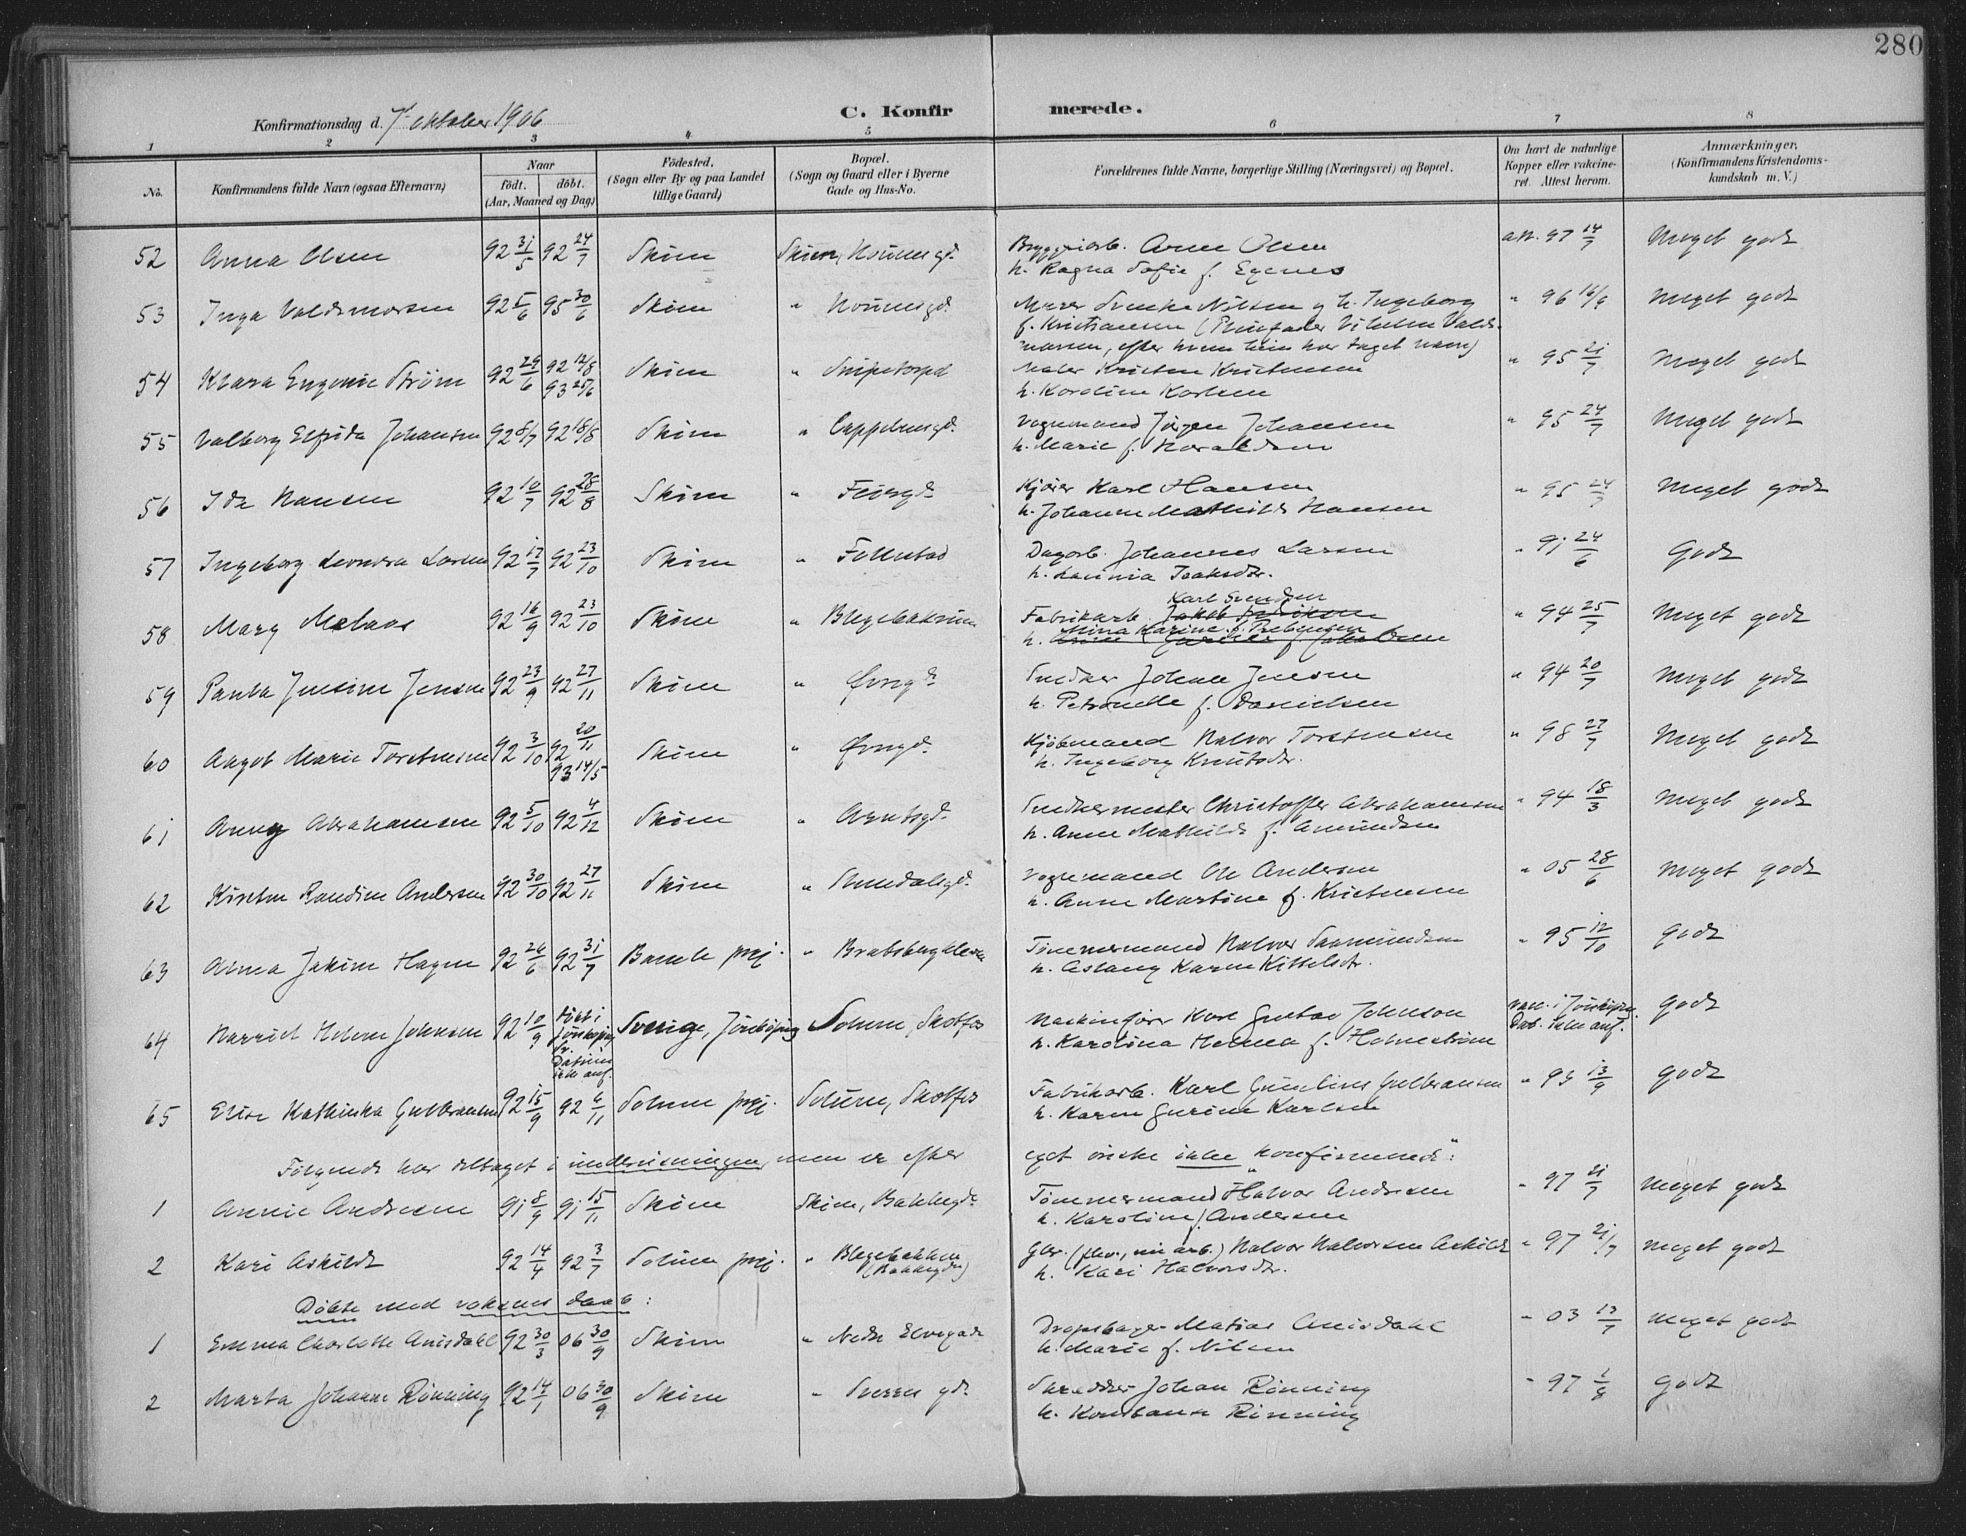 280
Konfirmationsdag d. 7 oktober 1906
C. Konfirmerede.
1 2 3 4 5 6 7 8
No.
Konfirmandens fulde Navn (ogsaa Efternavn)
Naar
født. døbt.
(Aar, Maaned og Dag)
Fødested.
(Sogn eller By og paa Landet
tillige Gaard)
Bopæl.
(Sogn og Gaard eller i Byerne
Gade og Hus-No.
Forældrenes fulde Navne, borgerlige Stilling (Næringsvei) og Bopæl.
Om havt de naturlige
Kopper eller vakcine-
ret. Attest herom.
Anmærkninger,
(Konfirmandens Kristendoms-
kundskab m. V.)
52 Anna Olsen 92 31/5 92 24/7 Skien Skien, Houensgd. Bryggeriarb. Arne Olsen att. 97 14/7 Meget godt
h. Ragna Sofie f. Egenes
53 Inga Valdemarsen 92 5/6 95 30/6 Skien " Houensgd. Murer Svenke Nilsen og h. Ingeborg " 96 16/9 Meget godt
f. Kristiansen (Pleiefader Vilhelm Valde-
marsen, efter hvem hun har taget navn)
54 Klara Eugenie Strøm 92 29/6 92 12/8 Skien " Snipetorpd Maler Kristen Kristensen " 95 21/7 Meget godt
93 25/6 h. Karoline Karlsen
55 Valborg Elfrida Johansen 92 8/7 92 18/8 Skien " Cappelensgd. Vognmand Jørgen Johansen " 95 24/7 Meget godt
h. Marie f. Haraldsen
56 Ida Hansen 92 10/7 92 28/8 Skien " Feiersgd. Kjører Karl Hansen " 95 24/7 Meget godt
h. Johanne Mathilde Hansen
57 Ingeborg Leondra Larsen 92 17/7 92 23/10 Skien " Follestad Dagarb. Johannes Larsen " 91 24/6 Godt
h. Lavinia Isaksdr.
58 Mary Melaas 92 16/9 92 23/10 Skien " Blegebakken Fabrikarb. Karl Svendsen " 94 25/7 Meget godt
h. Mina Karine f. Prebensen
59 Paula Jensine Jensen 92 23/9 92 27/11 Skien " Øvregd. Snedker Johan Jensen " 94 20/7 Meget godt
h. Petronelle f. Danielsen
60 Aagot Marie Torstensen 92 3/10 92 20/11 Skien " Øvregd. Kjøbmand Halvor Torstensen " 98 27/7 Meget godt
93 14/5 h. Ingeborg Knutsdr.
61 Anny Abrahamsen 92 5/10 92 4/12 Skien " Arntsgd. Snedkermester Christoffer Abrahamsen " 94 18/3 Meget godt
h. Anne Mathilde f. Amundsen
62 Kirsten Randine Andersen 92 30/10 92 27/11 Skien " Vognmand Ole Andersen " 05 28/6 Meget godt
h. Anne Martine f. Kristensen
63 Anna Jakine Hagen 92 26/6 92 31/7 Bamle prgj. " Bratsbergkleven Tømmermand Halvor Saamundsen " 95 12/10 Godt
h. Aslaug Karen Kittelsdr.
64 Harriet Helene Johnson 92 10/9 døbt i Jönköping Sverige, Jönköping Solum, Skotfos Maskinfører Karl Gustav Johnson vacc. i Jönköping. Godt
Datum ikke anf. h. Karolina Helena f. Holmström Dat. ikke anf.
65 Elise Kathinka Gulbransen 92 15/9 92 6/11 Solum prgj. Solum, Skotfos Fabrikarb. Karl Gulbransen " 93 13/9 Godt
h. Karen Gurine Karlsen
Følgende har deltaget i undervisningen, men er efter eget ønske ikke konfirmeret:
1 Annie Andresen 91 8/9 91 15/11 Skien Skien, Bakkegd. Tømmermand Halvor Andresen " 97 21/7 Meget godt
h. Karoline f. Andersen
2 Kari Askildt 92 14/4 92 3/7 Solum prgj. " Blegebakken Gbr. (flev., nu arb.) Halvor Halvorsen Askildt " 97 21/7 Meget godt
(Bakkegden) h. Kari Halvorsdr.
Døbte med voksens daab:
1 Emma Charlotte Amsdahl 92 30/3 06 30/9 Skien " Nedre Elvegade Matias Amsdahl " 03 13/7 Meget godt
h. Marie f. Nilsen
2 Marta Johanne Rønning 92 14/1 06 30/9 Skien " Sverres gd. Skrædder Johan Rønning " 97 1/8 Godt
h. Konstanse Rønning